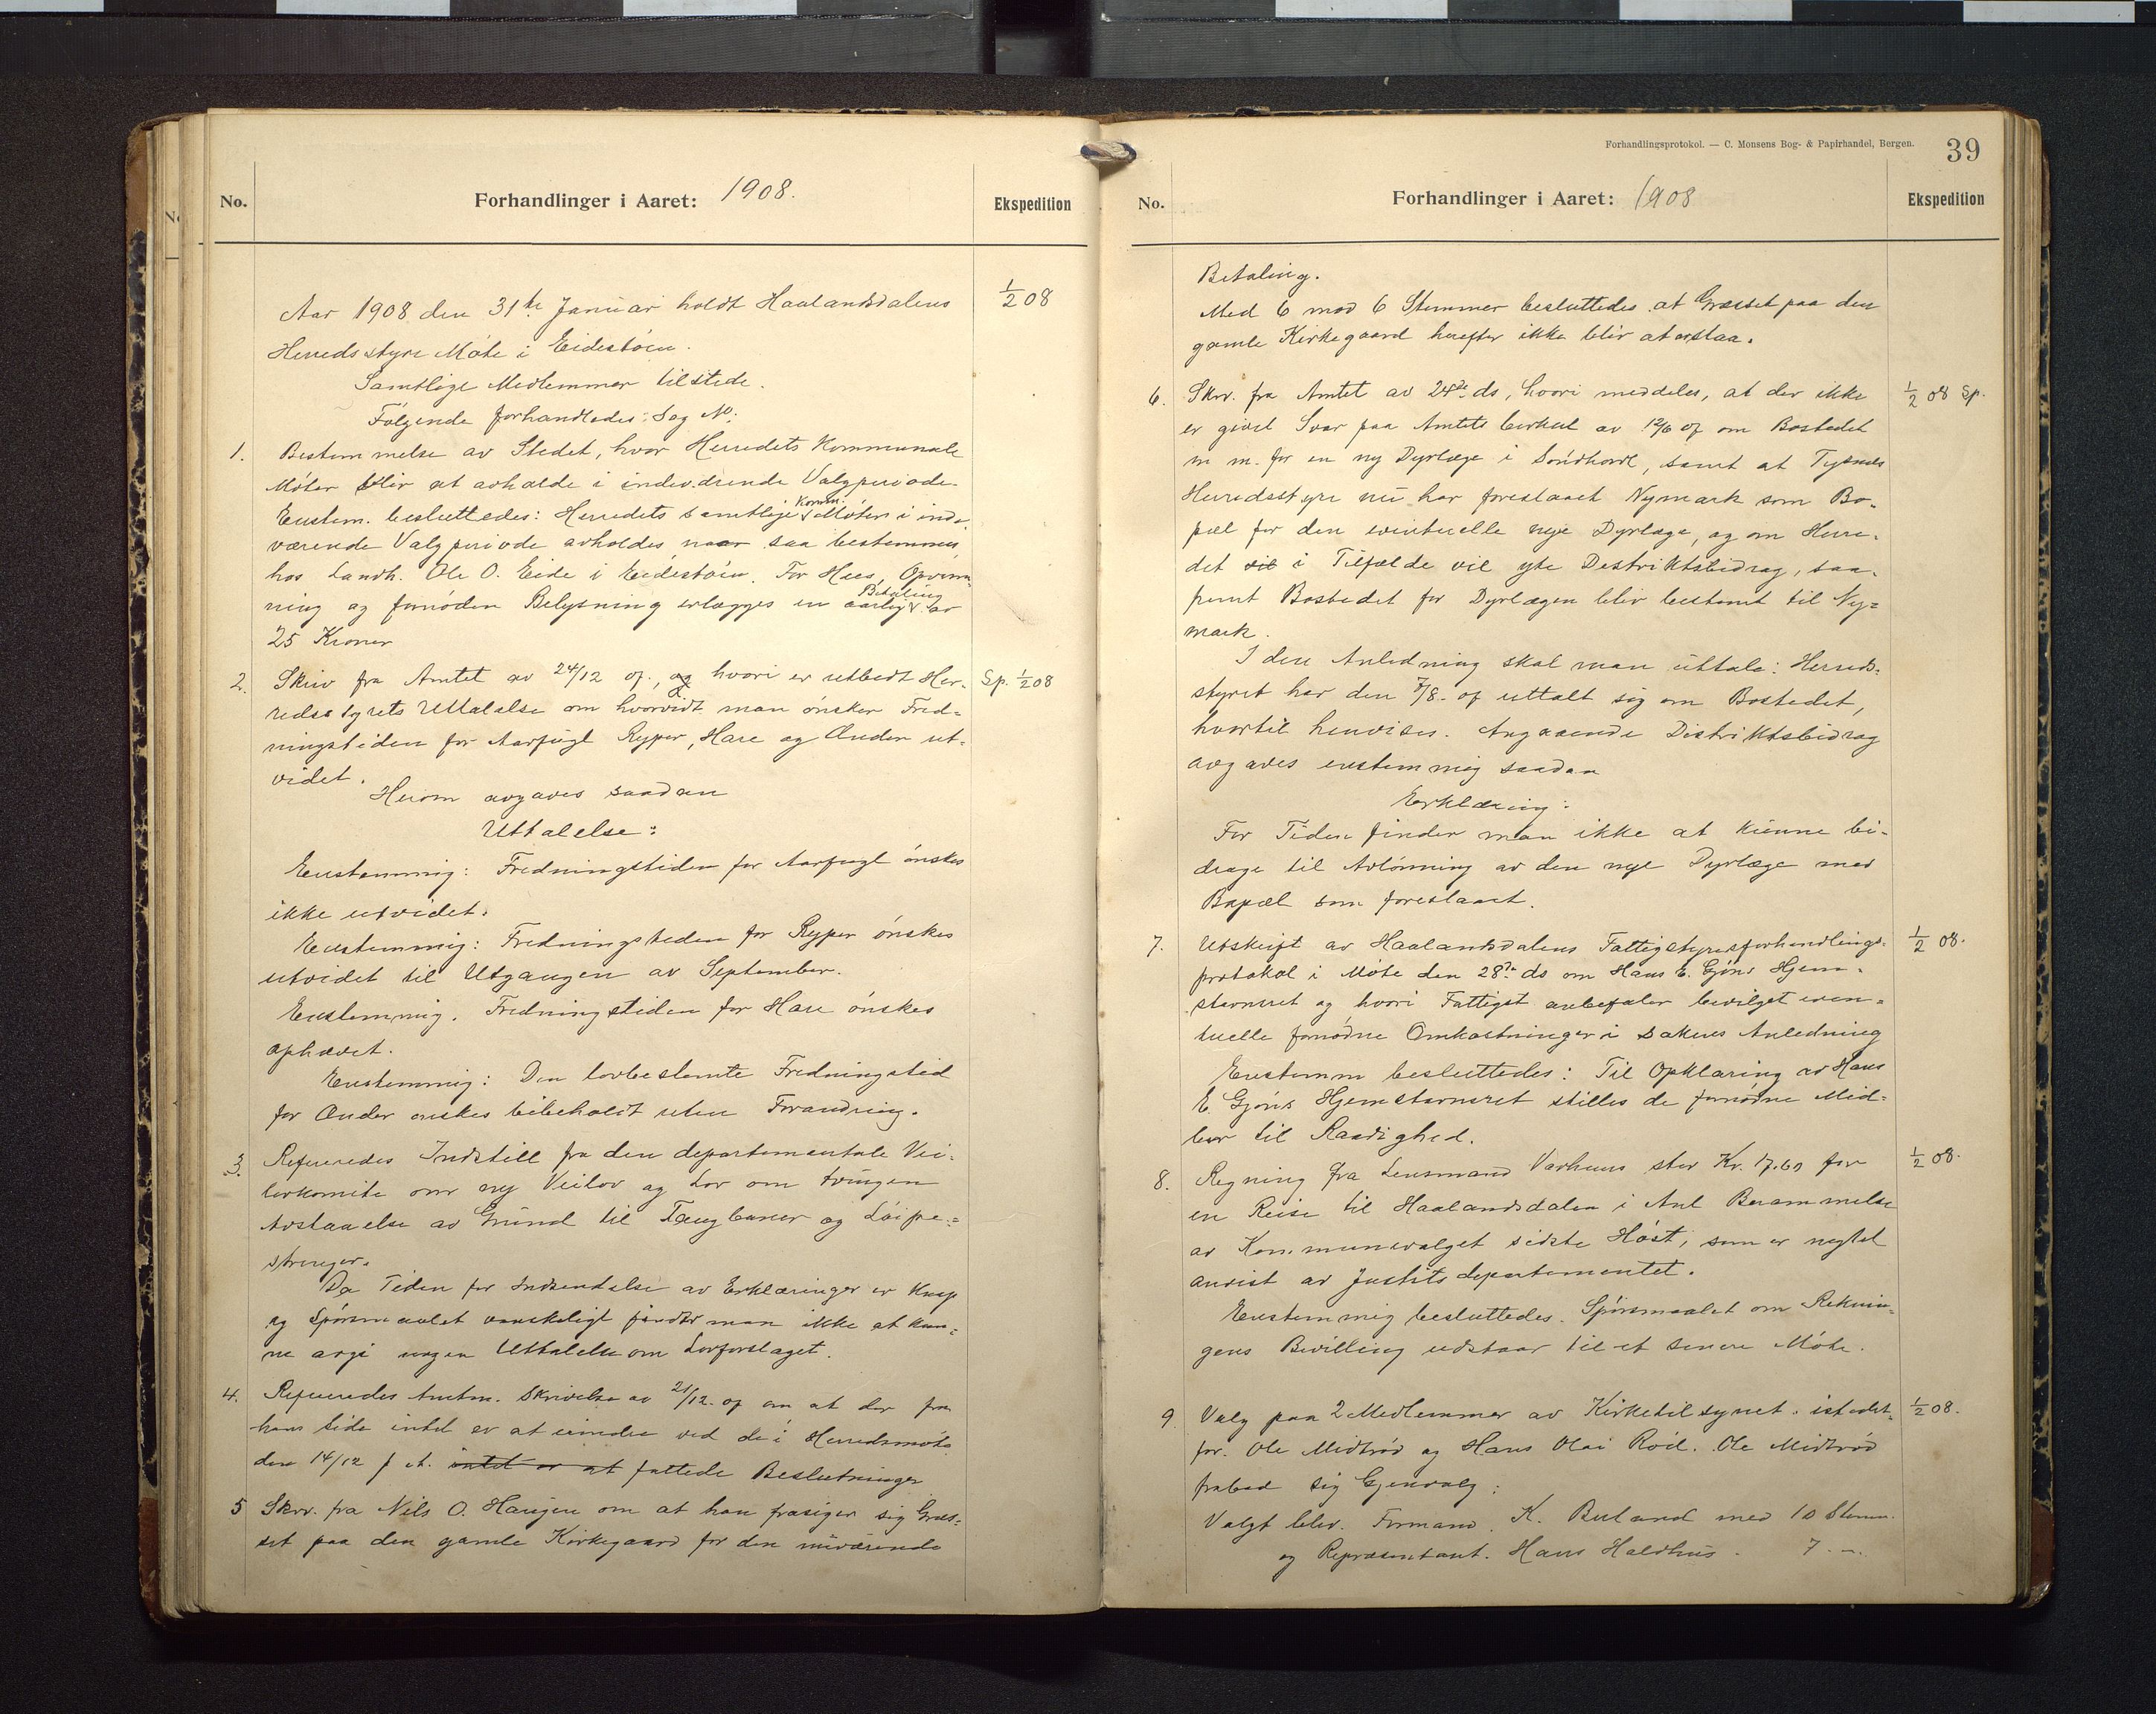 No.
Forhandlinger i Aaret: 1908.
Ekspedition
Aar 1908 den 31te Januar holdt Haalandsdalens
1/2 08
Herredsstyre Møte i Eidestøen.
Samtlige Medlemmer tilstede.
Følgende forhandledes: Sag No:
1. Bestemmelse av Stedet, hvor Herredets Kommunale
Møter blir at avholde i indev.drende Valgperiode.
Enstem. besluttedes: Herredets samtlige Komm. Møter i inde-
værende Valgperiode avholdes, naar saa bestemmes,
hos Landh. Ole O. Eide i Eidestøen. For Hus, Opvarm-
ning og fornøden Belysning erlægges en aarlig Betaling av
25 Kroner
2. Skriv fra Amtet av 24/12 of., og hvori er utbedt Her-
Sp. 1/2 08
redsstyrets Uttalelse om hvorvidt man ønsker Fred-
ningstiden for Aarfugl Ryper, Hare og Ænder ut-
videt.
Herom avgaves saadan
Uttalelse:
Enstemmig: Fredningstiden for Aarfugl ønskes
ikke utvidet.
Enstemmig: Fredningstiden for Ryper ønskes
utvidet til Utgangen av September.
Enstemmig. Fredningstiden for Hare ønskes
ophævet.
Enstemmig: Den lovbestemte Fredningstid
for Ænder ønskes bibeholdt uten Forandring.
3. Refereredes Indstill fra den departementale Vei-
lovkomite om ny Veilov og Lov om tvungen
Avstaaelse av Grund til Taugbaner og Løipe-
strenger.
Da Tiden for Indsendelse av Erklæringer er knap
og Spørsmaalet vanskeligt finder man ikke at kun-
ne avgi nogen Uttalelse om Lovforslaget.
4. Refereredes Amtm. Skrivelse av 21/12. of om at der fra
hans Side intet er at erindre ved de i Herredsmøte
den 14/12 f A. intet er at fattede Beslutninger
5 Skrv. fra Nils O. Haugen om at han frasiger sig Græs-
set paa den gamle Kirkegaard for den nuværende
Forhandlingsprotokol. — C. Monsens Bog- & Papirhandel, Bergen.
39
No.
Forhandlinger i Aaret: 1908
Ekspedition
Betaling.
Med 6 mod 6 Stemmer besluttedes at Græsset paa den
gamle Kirkegaard herefter ikke blir at avslaa.
6. Skrv. fra Amtet av 24de ds, hvori meddeles, at der ikke
1/2 08 Sp.
er givet Svar paa Amtets Cirkul av 12/6 of om Bostedet
m m. for en ny Dyrlæge i Søndhord, samt at Tysnes
Herredsstyre nu har foreslaaet Nymark som Bo-
pæl for den eventuelle nye Dyrlæge, og om Herre-
det vil i Tilfælde vil yte Distriktsbidrag, saa-
fremt Bostedet for Dyrlægen blir bestemt til Ny-
mark.
I den Anledning skal man uttale: Herreds-
styret har den 7/8. of uttalt sig om Bostedet,
hvortil henvises. Angaaende Distriktsbidrag
avgaves enstemmig saadan
Erklæring:
For Tiden finder man ikke at kunne bi-
drage til Avlønning av den nye Dyrlæge med
Bopæl som foreslaaet.
7. Utskrift av Haalandsdalens Fattigstyresforhandlings-
1/2 08.
protokol i Møte den 28de ds om Hans E. Gjøns Hjem-
stavnsret og hvori Fattigst anbefaler bevilget even-
tuelle fornødne Omkostninger i Sakens Anledning
Enstemm besluttedes: Til Opklaring av Hans
E. Gjøns Hjemstavnsret stilles de fornødne Mid-
ler til Raadighed.
8. Regning fra Lensmand Varhaug stor Kr. 17.60 for
1/2 08.
en Reise til Haalandsdalen i Anl Berammelse
av Kommunevalget sidste Høst, som er negtet
anvist av Justitsdepartementet.
Enstemmig besluttedes. Spørsmaalet om Reknin-
gens Bevilling utstaar til et senere Møte.
9 Valg paa 2 Medlemmer av Kirketilsynet. istedet-
1/2 08.
for. Ole Midtrød og Hans Olai Roil. Ole Midtrød
frabad sig Gjenvalg:
Valgt blev. Formand. K. Buland med 10 Stemm.
og Repræsentant. Hans Haldhus. 7. —.